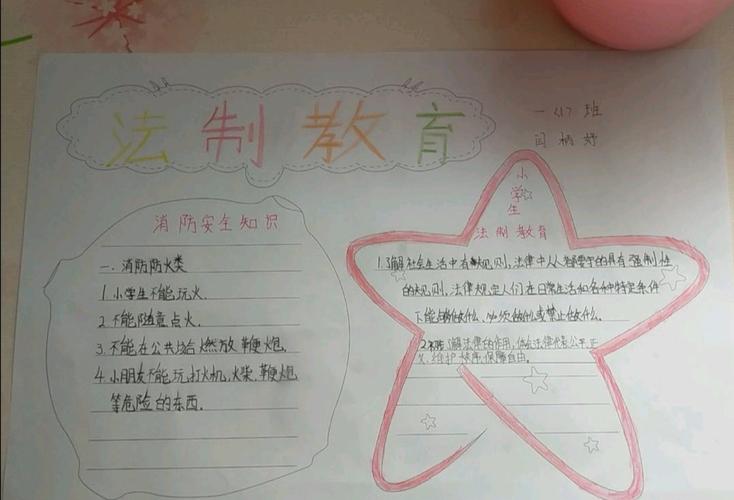 法制教育
一〈1〉班
闫柄妤
消防安全知识
一.消防防火类
1.小学生不能玩火.
2.不能随意点火.
3.不能在公共场合燃放鞭炮.
4.小朋友不能玩打火机,火柴.鞭炮
等危险的东西.
小
学
生
法制教育
1.了解社会生活中有规则,法律中人都要守的具有强制性
的规则,法律规定人们在日常生活和各种特定条件
下能够做什么、必须做什么或禁止做什么.
2.了解法律的作用,体会法律代表公平正
义,维护秩序,保障自由.